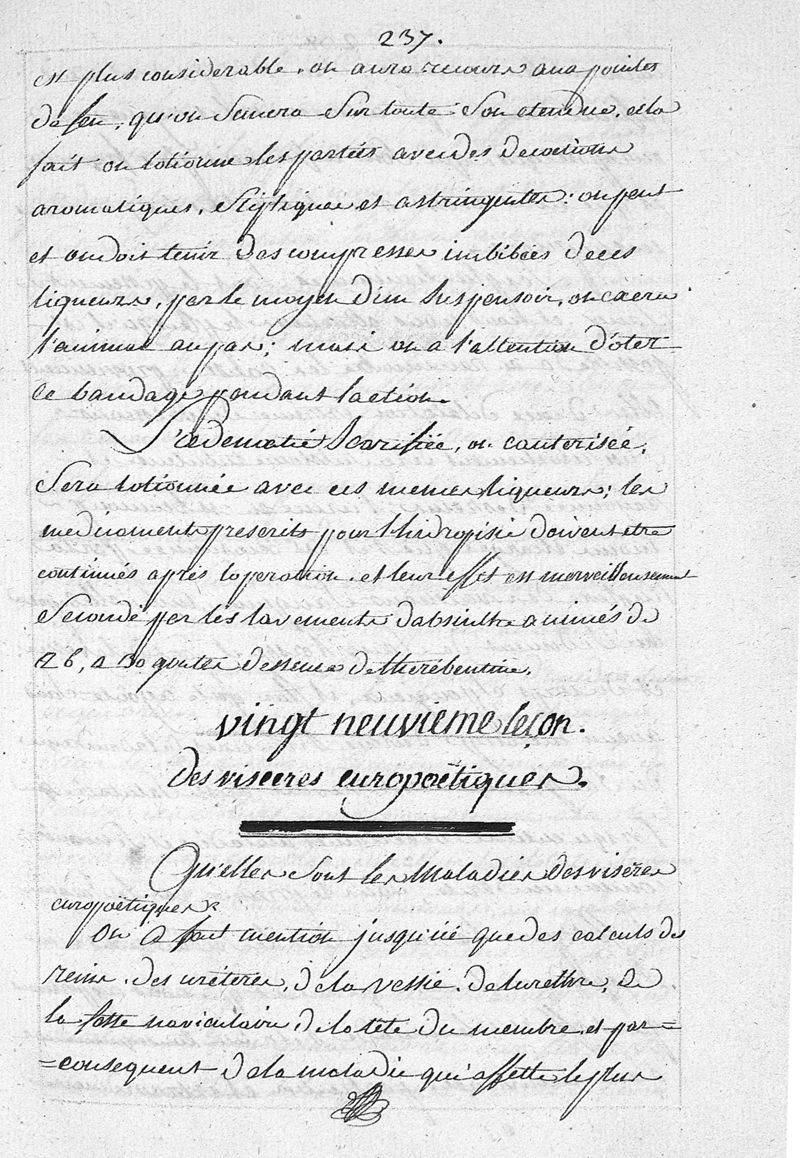 237.
est plus considerable, on aura recours aux pointes
de feu, qu'on semera sur toute son etendue, cela
fait on lotionne les parties avec des decoctions
aromatiques, stiptiques et astringentes; on peut
et on doit tenir des compresses imbibées de ces
liqueurs, par le moyen d'un suspensoir, on exerce
l'animal au pas; mais on a l'attention d'oter
ce bandage pendant l'action.
L'œdematié scarifiée, ou cauterisée,
sera lotionnée avec ces memes liqueurs; les
medicaments prescrits pour l'hidropisie doivent etre
continués après l'operation, et leur effet est merveilleusement
secondé par les lavements d'absinthe animés de
26, a 30 goutes d'essence de therébentine.
vingt neuvieme leçon.
des visceres europoëtiques.
Qu'elles sont les Maladies des viscères
europoëtiques?
On a fait mention jusqu'icé que des calculs des
reins, des uréteres, de la vessie, de l'urethre, de
la fosse naviculaire, de la tête du membre, et par=
=consequent de la maladie qui affette le plus